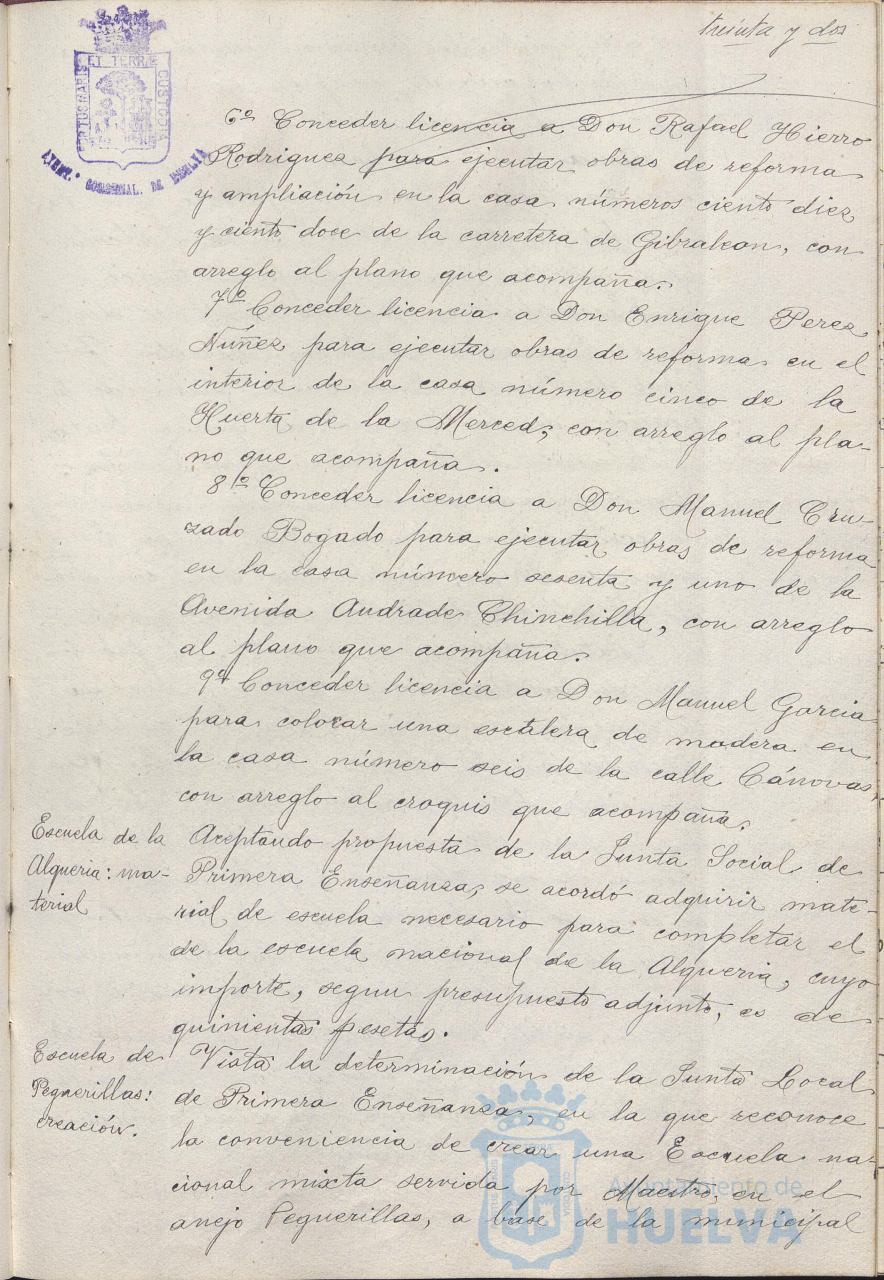 treinta y dos
PORTUS MARIS ET TERRE CUSTODIA
AYUNT.
DE HUELVA
6º Conceder licencia a Don Rafael Hierro
Rodriguez para ejecutar obras de reforma
y ampliación en la casa números ciento diez
y ciento doce de la carretera de Gibraleon, con
arreglo al plano que acompaña.
7º Conceder licencia a Don Enrique Perez
Núñez para ejecutar obras de reforma en el
interior de la casa número cinco de la
Huerta de la Merced, con arreglo al pla-
no que acompaña.
8º Conceder licencia a Don Manuel Cru-
zado Bogado para ejecutar obras de reforma
en la casa número sesenta y uno de la
Avenida Andrade Chinchilla, con arreglo
al plano que acompaña.
9º Conceder licencia a Don Manuel Garcia
para colocar una escalera de madera en
la casa número seis de la calle Cánovas,
con arreglo al croquis que acompaña.
Escuela de la
Alqueria: ma-
terial
Aceptando propuesta de la Junta Social de
Primera Enseñanza, se acordó adquirir mate-
rial de escuela necesario para completar el
de la escuela nacional de la Alqueria, cuyo
importe, segun presupuesto adjunto, es de
quinientas pesetas.
Escuela de
Peguerillas:
creación.
Vista la determinación de la Junta Local
de Primera Enseñanza, en la que reconoce
la conveniencia de crear una Escuela na-
cional mixta servida por Maestro, en el
anejo Peguerillas, a base de la municipal
Ayuntamiento de
HUELVA